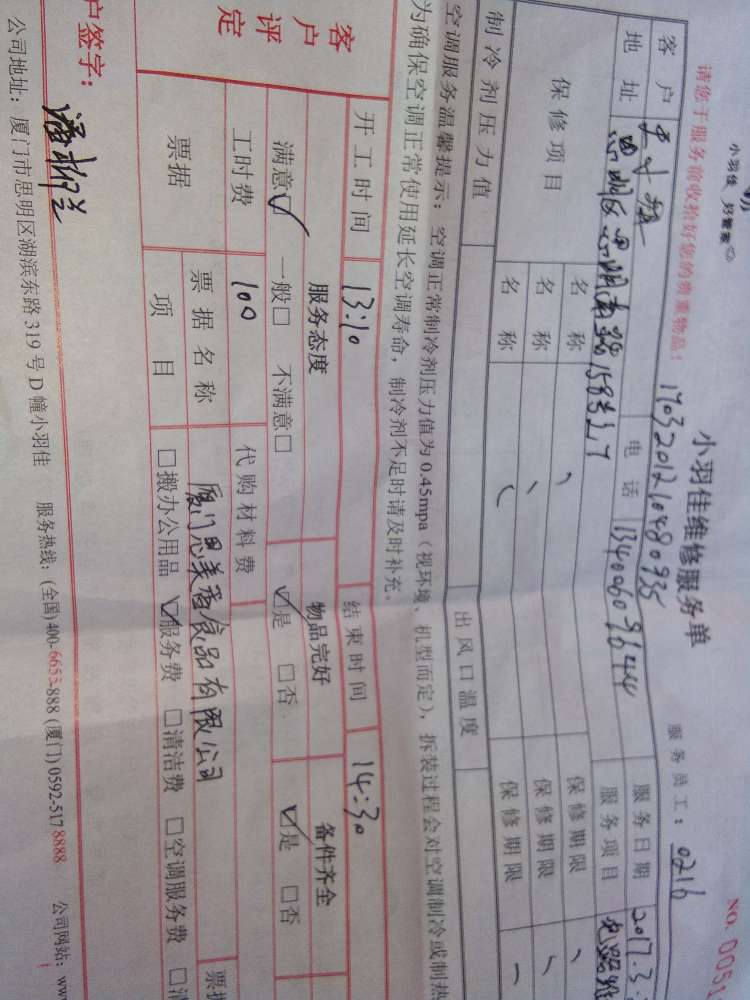 小羽佳 好管家
小羽佳维修服务单
NO. 0051
请您于服务前收拾好您的贵重物品!
170320121080935
服务员工: 0216
客户
电话 13400609644
服务日期 2017.3
地址 思明区思明南路158号
服务项目
保修项目
名称 保修期限
名称 保修期限
名称 保修期限
制冷剂压力值
出风口温度
空调服务温馨提示:空调正常制冷剂压力值为0.45mpa(视环境、机型而定),拆装过程会对空调制冷或制热
为确保空调正常使用延长空调寿命,制冷剂不足时请及时补充。
客户评定
开工时间 13:10 结束时间 14:30
服务态度 物品完好 备件齐全
满意☑ 一般□ 不满意□ ☑是 □否 ☑是 □否
工时费 100 代购材料费
票据 票据名称 厦门思美香食品有限公司 票据
项目 □搬办公用品 ☑服务费 □清洁费 □空调服务费 □清
户签字:
公司地址:厦门市思明区湖滨东路319号D幢小羽佳 服务热线:(全国)400-6653-888 (厦门)0592-517 8888 公司网站:ww